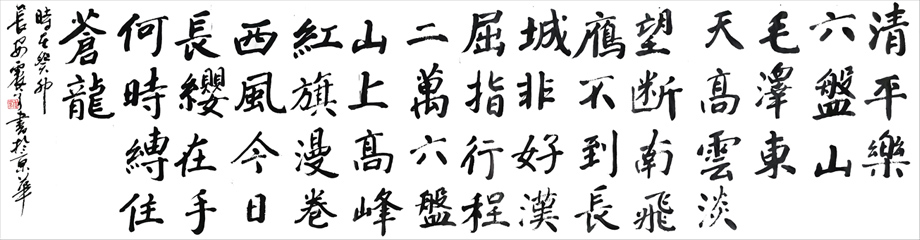 清平樂
六盤山
毛澤東
天高雲淡
望断南飛
鴈不到長
城非好漢
屈指行程
二萬六盤
山上高峰
紅旗漫卷
西風今日
長纓在手
何時縛住
蒼龍
時在癸卯
長安書於京華